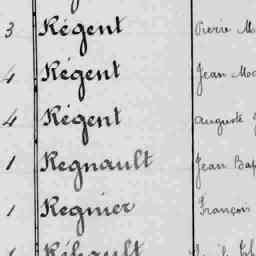 3 Régent Pierre M
4 Régent Jean Mo
4 Régent Auguste
1 Regnault Jean Bap
1 Regnier François
1 Réhault